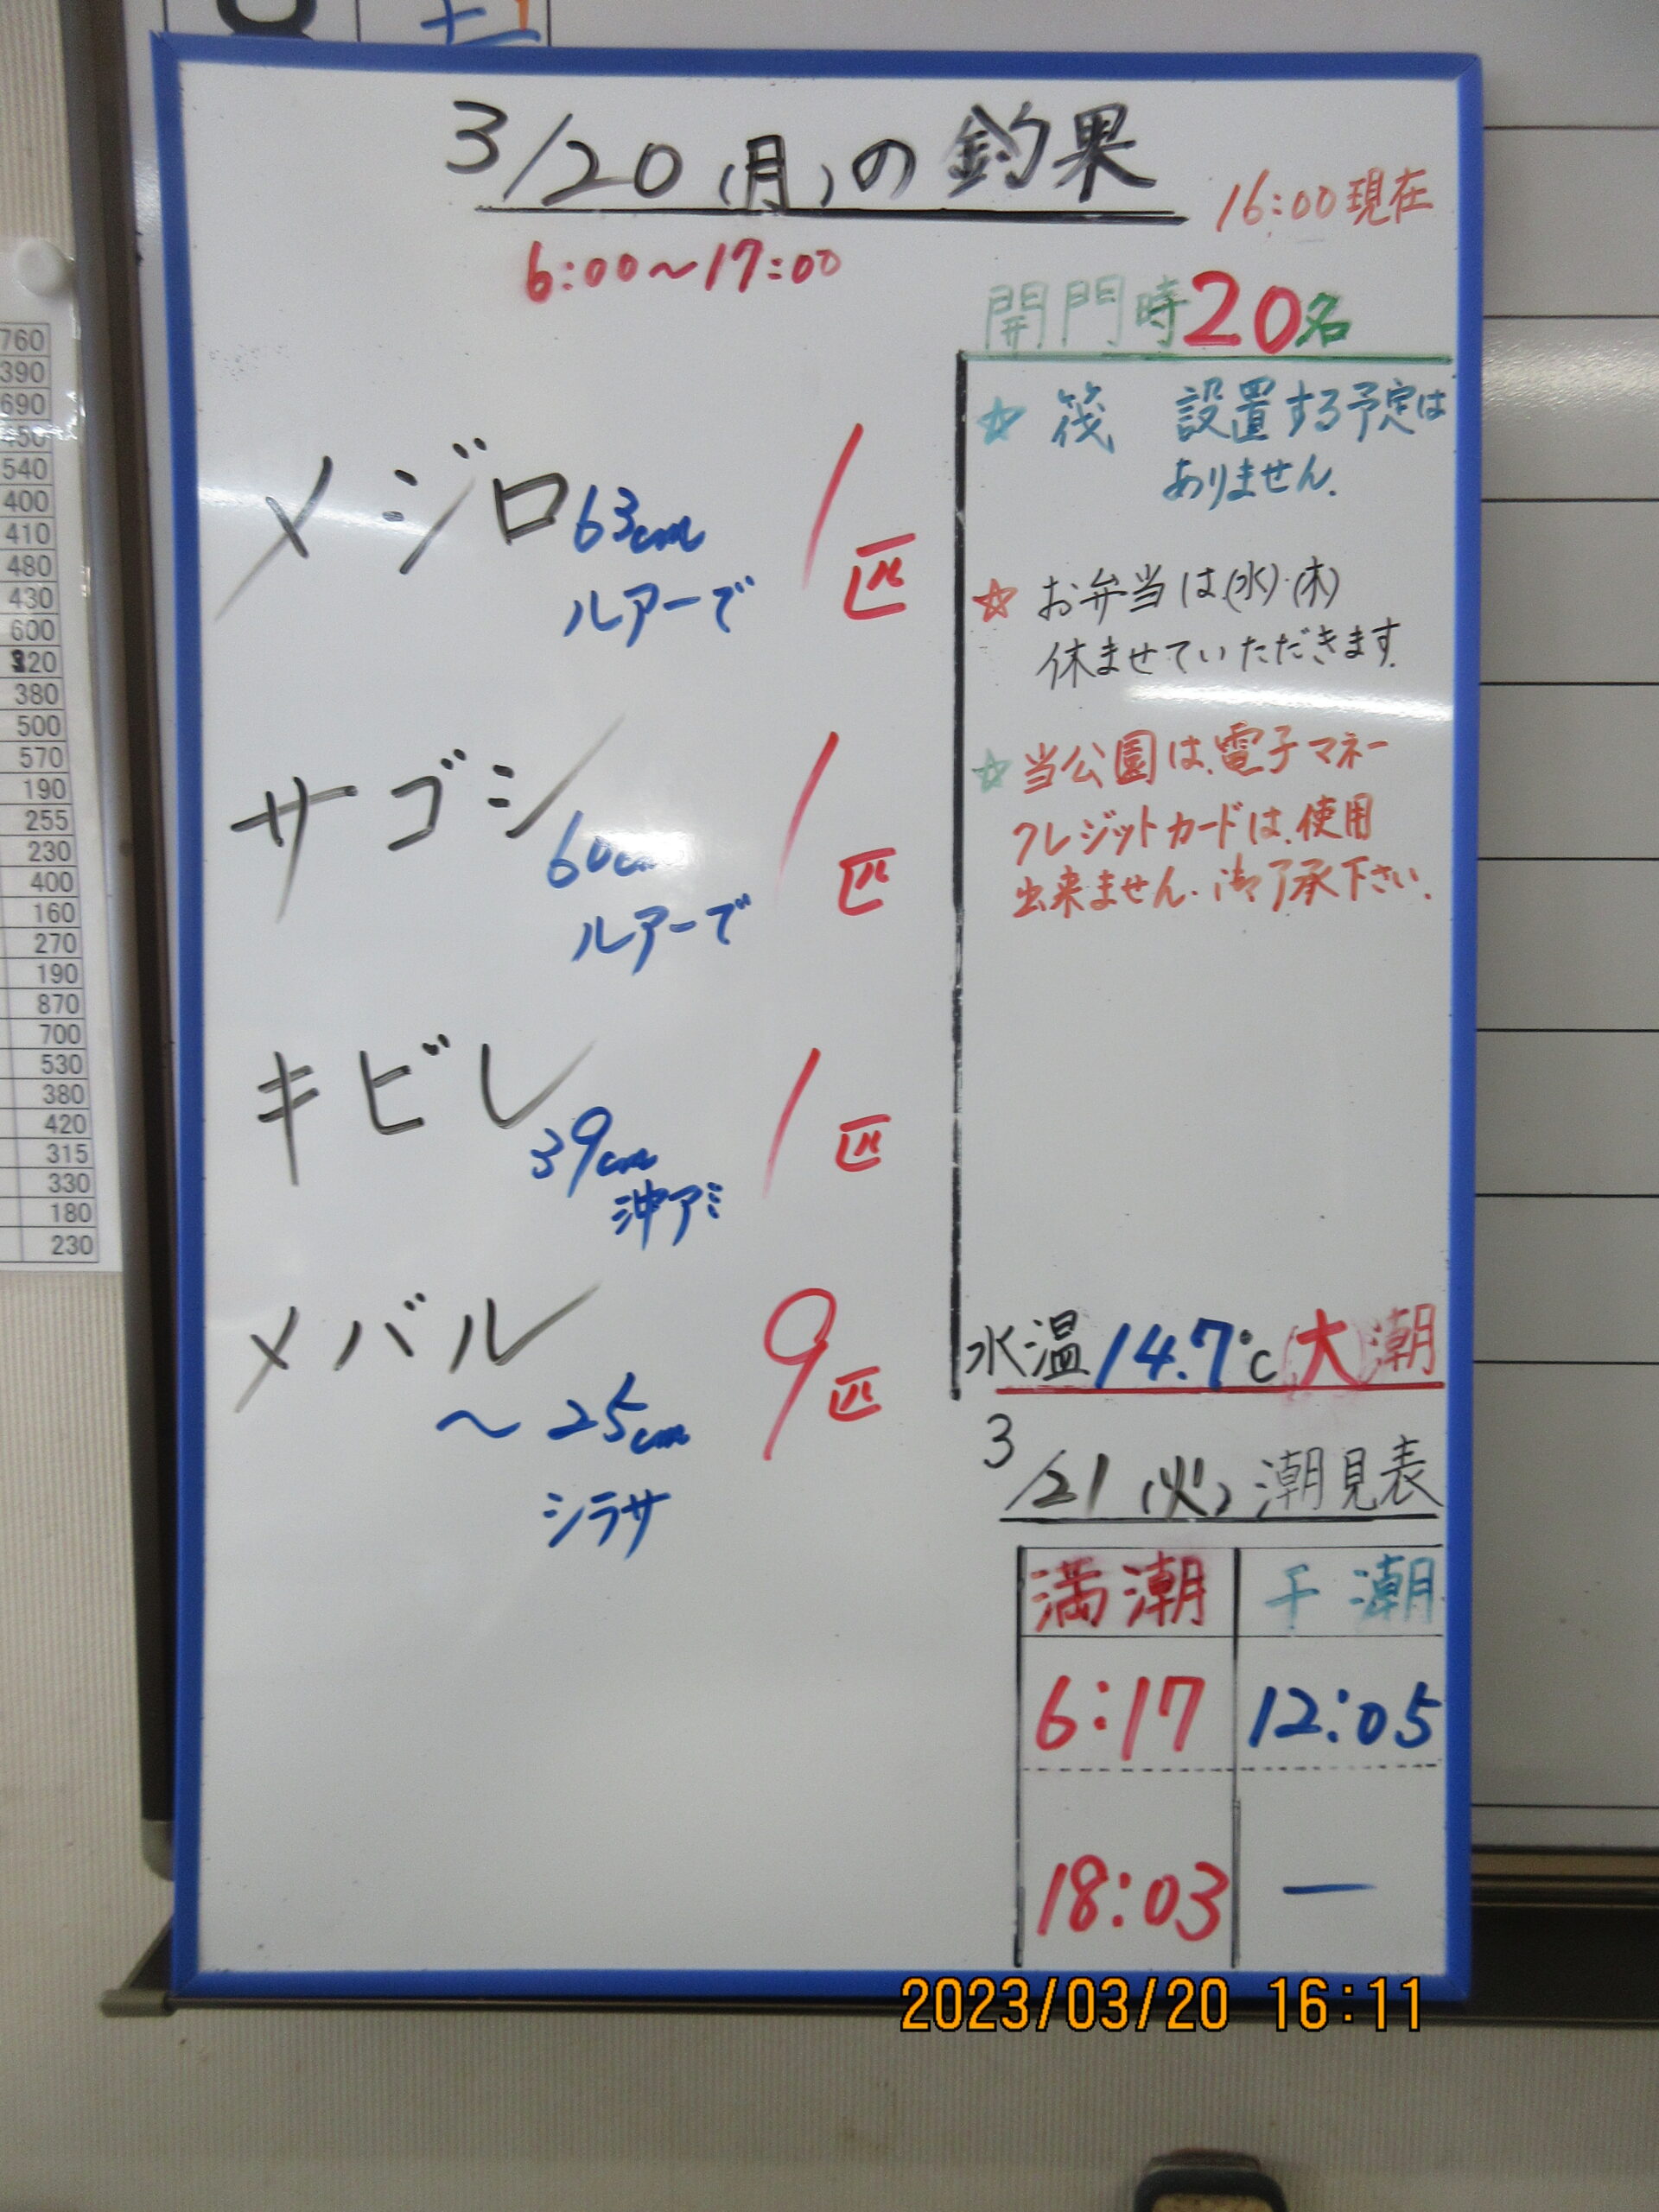 土
3/20(月)の釣果
16:00現在
6:00～17:00
開門時20名
メジロ 63cm 1匹
ルアーで
サゴシ 60cm 1匹
ルアーで
キビレ 39cm 1匹
沖アミ
メバル 9匹
～25cm
シラサ
☆ 筏 設置する予定は
ありません.
☆ お弁当は(水)(木)
休ませていただきます.
☆ 当公園は、電子マネー
クレジットカードは、使用
出来ません. 御了承下さい.
水温14.7℃(大)潮
3/21(火)潮見表
満潮 干潮
6:17 12:05
18:03 —
760
390
690
450
540
400
410
480
430
600
320
380
500
570
190
255
230
400
160
270
190
870
700
530
380
420
315
330
180
230
2023/03/20 16:11